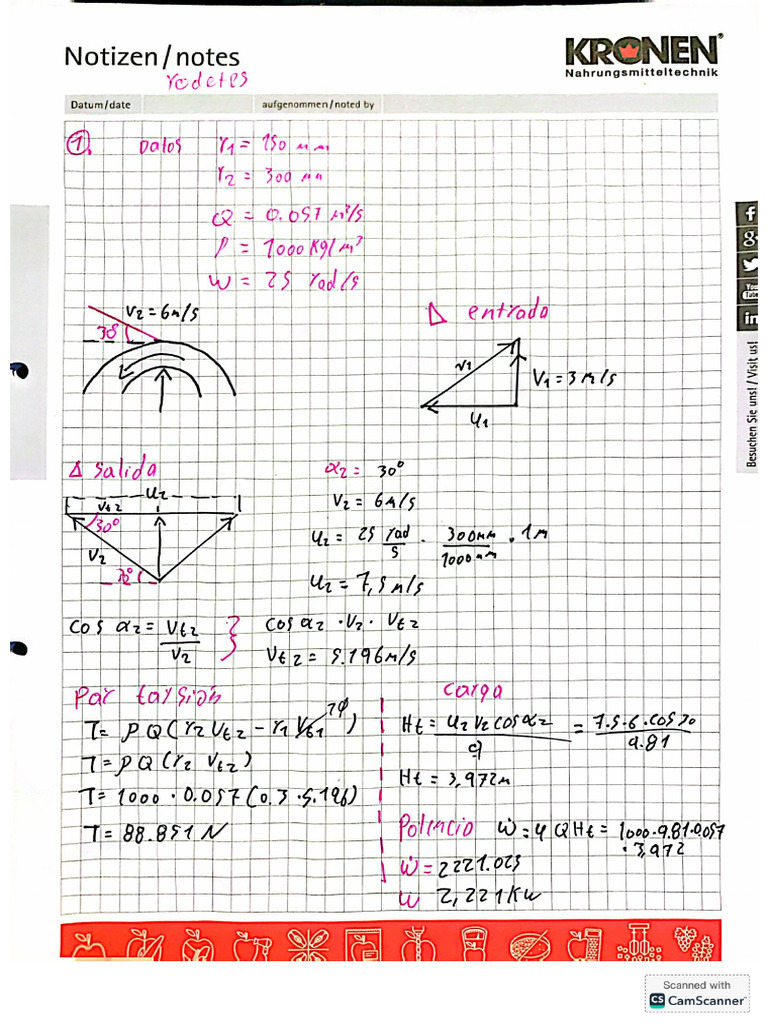 Notizen / notes
rodetes
KRONEN®
Nahrungsmitteltechnik
Datum / date
aufgenommen / noted by
1. Datos r1 = 150 mm
r2 = 300 mm
Q = 0.057 m³/s
ρ = 1000 Kg/m³
W = 25 rad/s
V2 = 6m/s
30°
Δ entrada
V1
V1 = 3 m/s
U1
Δ salida
U2
Vt2
30°
V2
30°
α2 = 30°
V2 = 6m/s
U2 = 25 rad/s · 300mm/1000mm · 1m
U2 = 7,5 m/s
cos α2 = Vt2/V2 } cos α2 · V2 · Vt2
Vt2 = 5.196m/s
Par torsión
T = ρQ(r2 Vt2 - r1 Vt1)
T = ρQ(r2 Vt2)
T = 1000 · 0.057 (0.3 · 5.196)
T = 88.851 N
carga
Ht = U2 V2 cos α2 / g = 7.5·6·cos30 / 9.81
Ht = 3,972m
Potencia Ẇ = γ Q Ht = 1000·9.81·0.057
· 3,972
Ẇ = 2221.025
W 2,221KW
f
g+
You
Tube
in
Besuchen Sie uns! / Visit us!
Scanned with
CS CamScanner